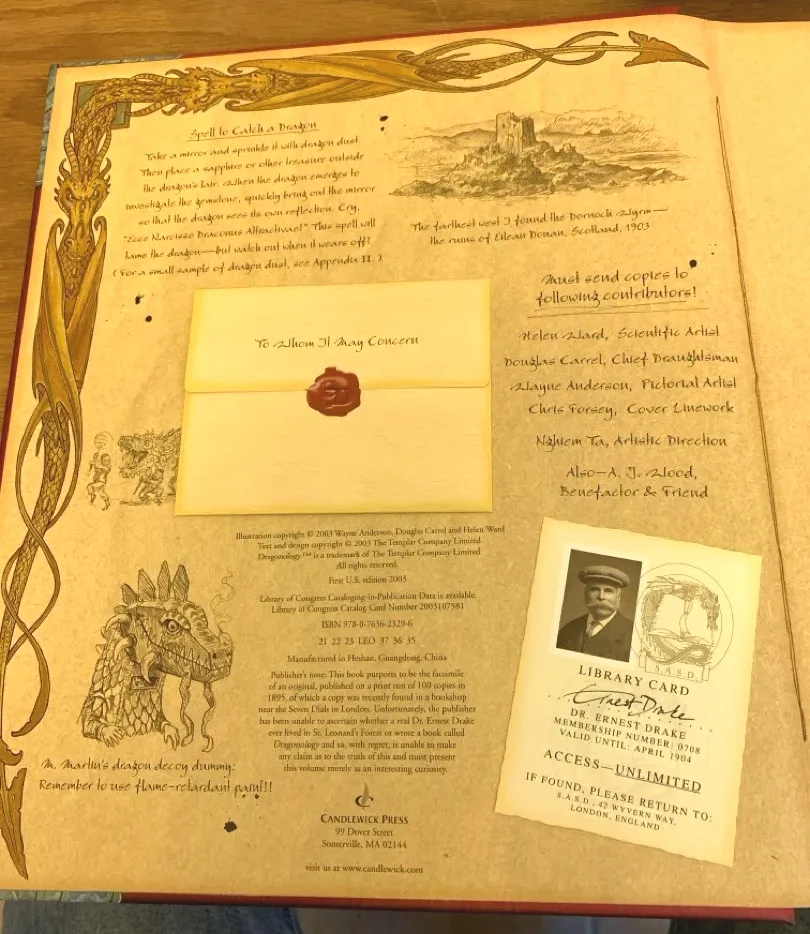 Spell to Catch a Dragon
Take a mirror and sprinkle it with dragon dust.
Then place a sapphire or other treasure outside
the dragon's lair. When the dragon emerges to
investigate the gemstone, quickly bring out the mirror
so that the dragon sees its own reflection. Cry,
"Ecce Narcisso Draconus Attractivae!" This spell will
tame the dragon—but watch out when it wears off!
(For a small sample of dragon dust, see Appendix II.)
The farthest west I found the Dornoch Wyrm—
the ruins of Eilean Donan, Scotland, 1903
Must send copies to
following contributors!
Helen Ward, Scientific Artist
Douglas Carrel, Chief Draughtsman
Wayne Anderson, Pictorial Artist
Chris Forsey, Cover Linework
Nghiem Ta, Artistic Direction
Also—A. J. Wood,
Benefactor & Friend
To Whom It May Concern
Illustration copyright © 2003 Wayne Anderson, Douglas Carrel and Helen Ward
Text and design copyright © 2003 The Templar Company Limited
Dragonology™ is a trademark of The Templar Company Limited
All rights reserved.
First U.S. edition 2003
Library of Congress Cataloging-in-Publication Data is available.
Library of Congress Catalog Card Number 2003107581
ISBN 978-0-7636-2329-6
21 22 23 LEO 37 36 35
Manufactured in Heshan, Guangdong, China
Publisher's note: This book purports to be the facsimile
of an original, published on a print run of 100 copies in
1895, of which a copy was recently found in a bookshop
near the Seven Dials in London. Unfortunately, the publisher
has been unable to ascertain whether a real Dr. Ernest Drake
ever lived in St. Leonard's Forest or wrote a book called
Dragonology and so, with regret, is unable to make
any claim as to the truth of this and must present
this volume merely as an interesting curiosity.
CANDLEWICK PRESS
99 Dover Street
Somerville, MA 02144
visit us at www.candlewick.com
M. Martin's dragon decoy dummy:
Remember to use flame-retardant paint!!
S.A.S.D.
LIBRARY CARD
Ernest Drake
DR. ERNEST DRAKE
MEMBERSHIP NUMBER: 0708
VALID UNTIL: APRIL 1904
ACCESS—UNLIMITED
IF FOUND, PLEASE RETURN TO:
S.A.S.D., 42 WYVERN WAY,
LONDON, ENGLAND